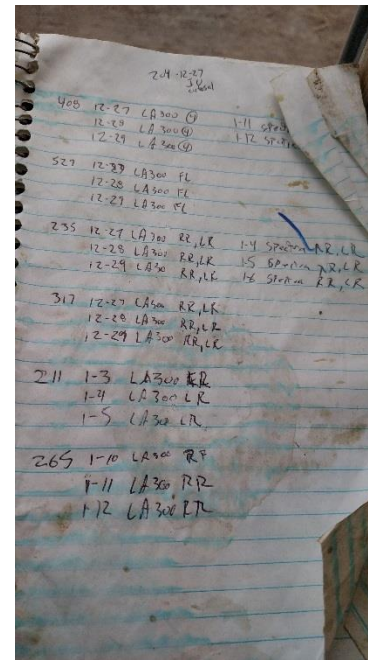 204 -12-27
408 12-27 LA300 (4)
12-28 LA300 (4) 1-11
12-29 LA300 (4) 1-12
527 12-27 LA300 FL
12-28 LA300 FL
12-29 LA300 FL
235 12-27 LA300 RR, LR 1-4 Spectram RR, LR
12-28 LA300 RR, LR 1-5 Spectram RR, LR
12-29 LA300 RR, LR 1-6 Spectram RR, LR
317 12-27 LA300 RR, LR
12-28 LA300 RR, LR
12-29 LA300 RR, LR
211 1-3 LA300 LR
1-4 LA300 LR
1-5 LA300 LR
265 1-10 LA300 RR
1-11 LA300 RR
1-12 LA300 RR